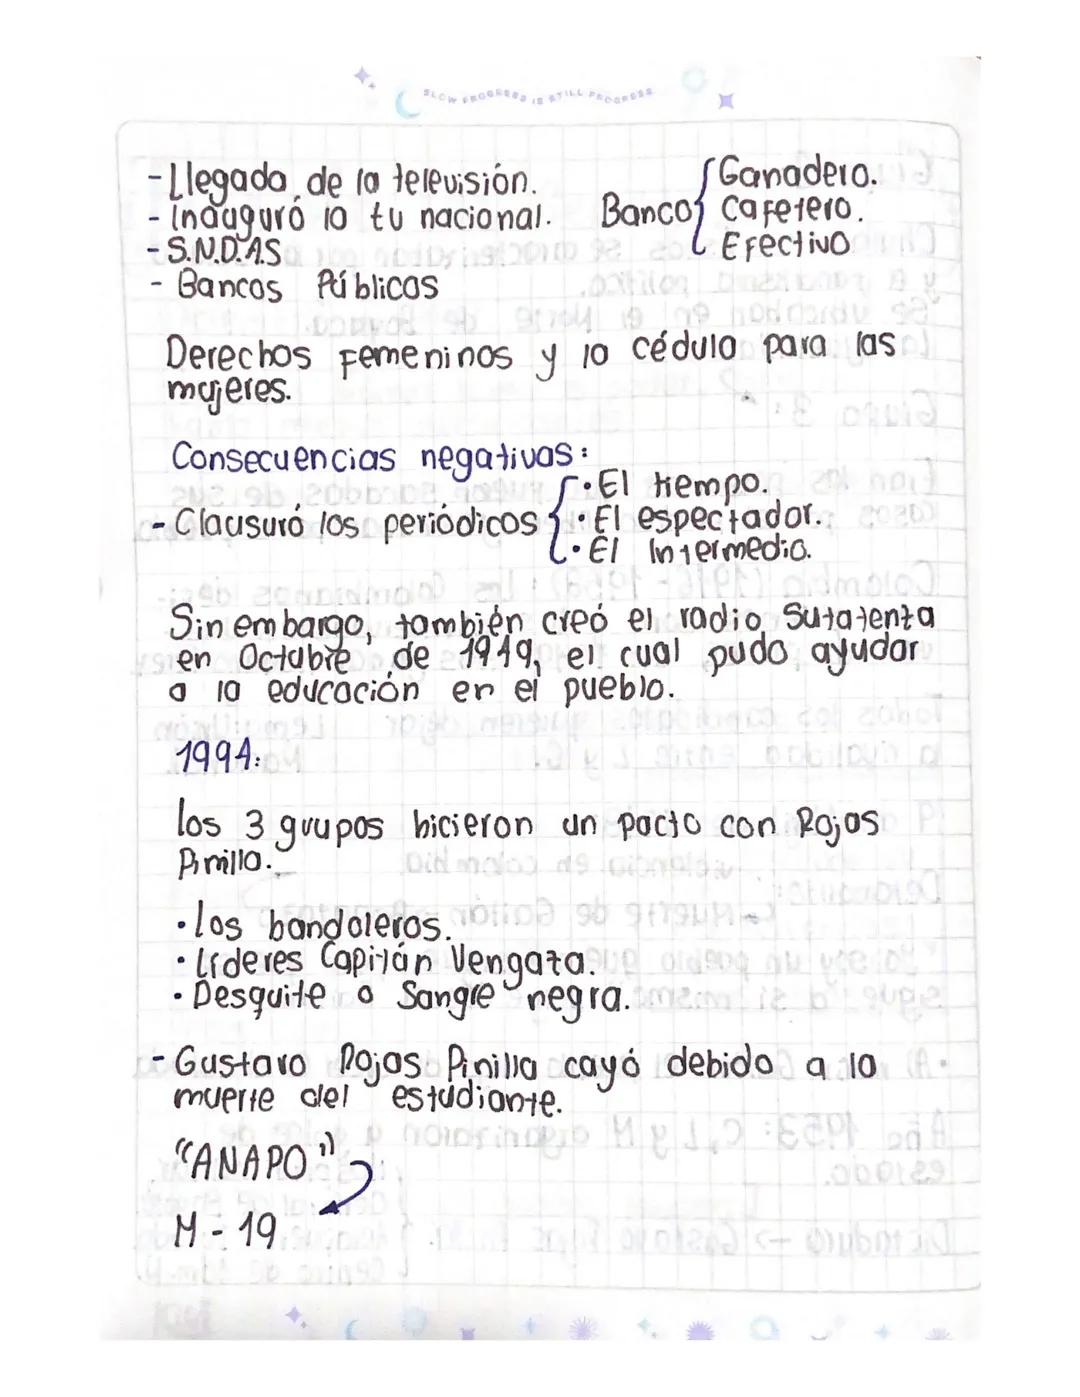 SLOW PROGRESS IS STILL PROGRESS
-Llegada de la televisión.
- Inauguró la tv nacional.
- S.N.D.A.S
- Bancos Públicos
Banco
Ganadero.
Cafetero.
Efectivo
Derechos femeninos y la cédula para las
mujeres.
Consecuencias negativas:
- Clausuró los periódicos
• El tiempo.
• El espectador.
• El Intermedio.
Sin embargo, también creó el radio Sutatenza
en Octubre de 1949, el cual pudo ayudar
a la educación en el pueblo.
1994:
los 3 grupos hicieron un pacto con Rojas
Pinilla.
• los bandoleros.
• Líderes Capitán Vengaza.
• Desquite o Sangre negra.
- Gustavo Rojas Pinilla cayó debido a la
muerte del estudiante.
"ANAPO"
M - 19